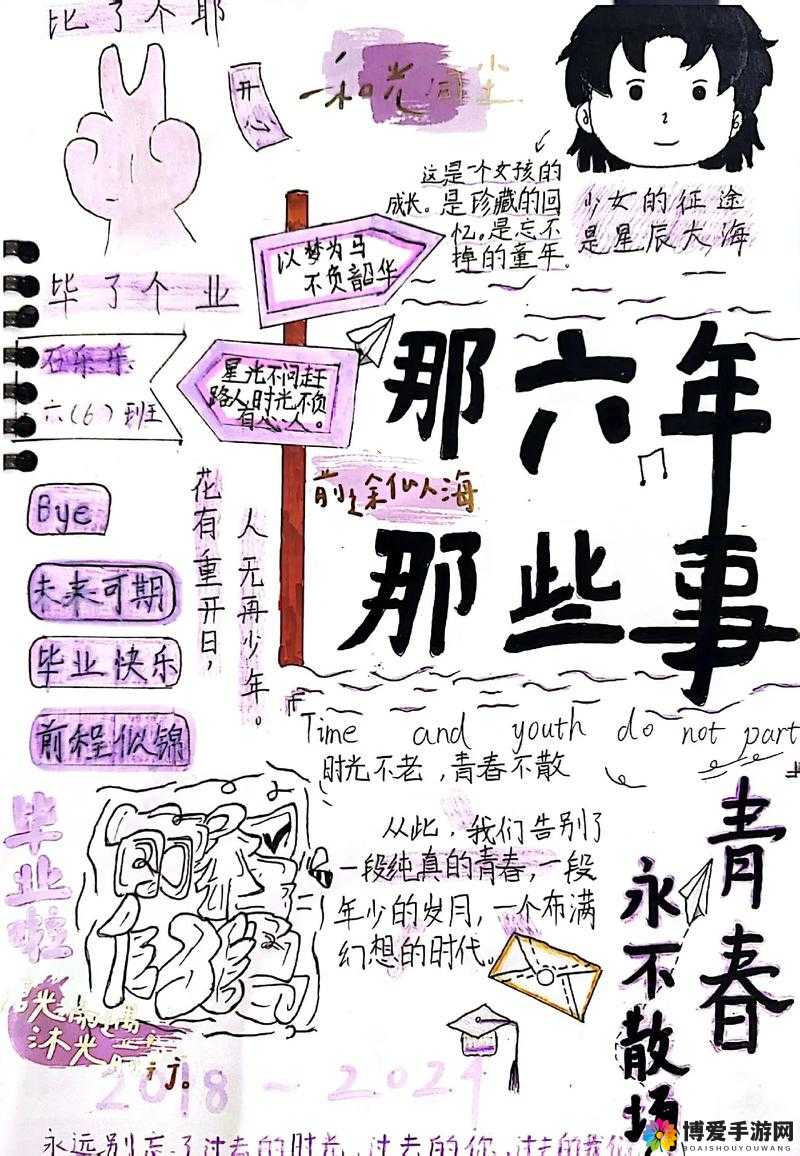 比了个耶
开心
和光同尘
这是一个女孩的
成长。是珍藏的回
忆。是忘不
掉的童年。
少女的征途
是星辰大海
以梦为马
不负韶华
毕了个业
石乐乐
六(6)班
星光不问赶
路人时光不负
有心人。
那六年
那些事
前途似海
Bye
未来可期
毕业快乐
前程似锦
花有重开日，
人无再少年。
Time and youth do not part
时光不老，青春不散
毕业啦
前程
似锦
从此，我们告别了
一段纯真的青春，一段
年少的岁月，一个布满
幻想的时代。
青春
永不散场
沐光而行。
2018-2024
永远别忘了过去的时光，过去的你，过去的我们
博爱手游网
BOAISHOUYOUWANG